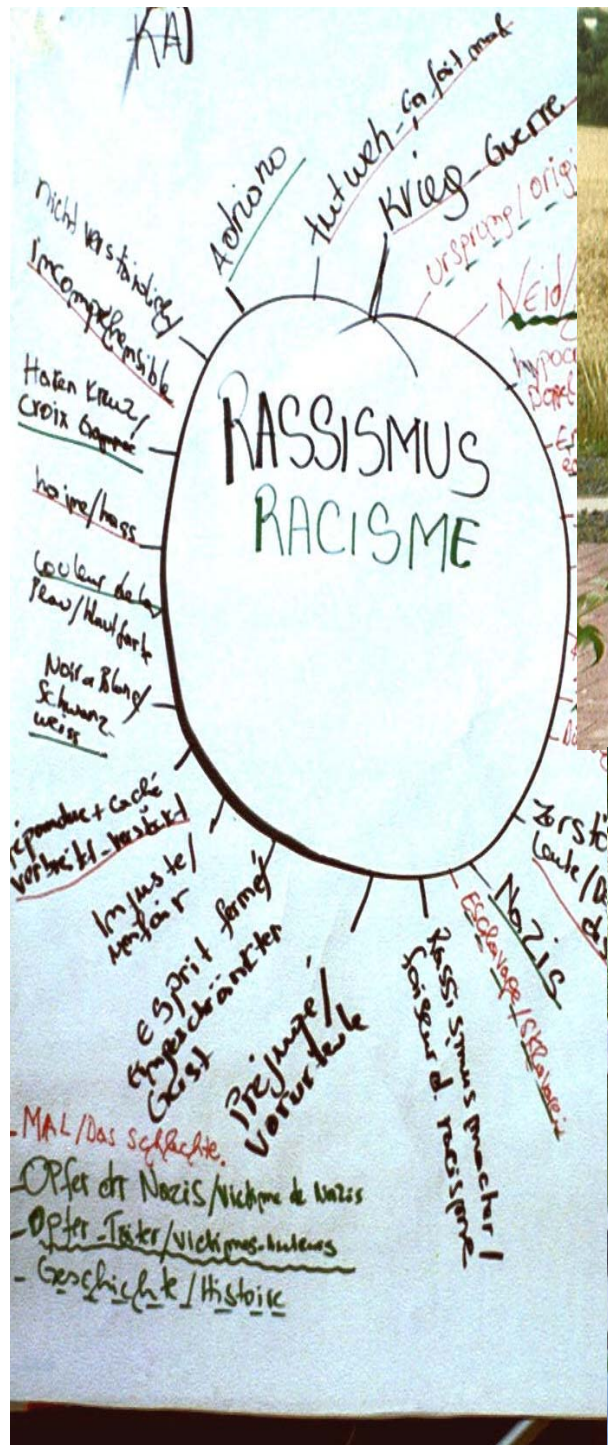 KA
Adriano
tut weh - ça fait mal
Krieg - Guerre
ursprung / origi
Neid/
nicht verständlich/
incompréhensible
Haken Kreuz/
Croix Gammée
haine/hass
couleur de la
Peau/Hautfarbe
Noir & Blanc/
Schwarz
weiss
RASSISMUS
RACISME
répandue + caché
Injuste/
unfair
Esprit fermé/
Eingeschränkter
Geist
Préjugé/
Vorurteile
Rassismusmacher/
faiseur d. racisme
Esclavage/Sklaverei
Nazis
Zerstö
Leute/D
- MAL/Das schlechte.
- Opfer der Nazis/victime de Nazis
- Opfer - Täter/victimes-auteurs
- Geschichte/Histoire